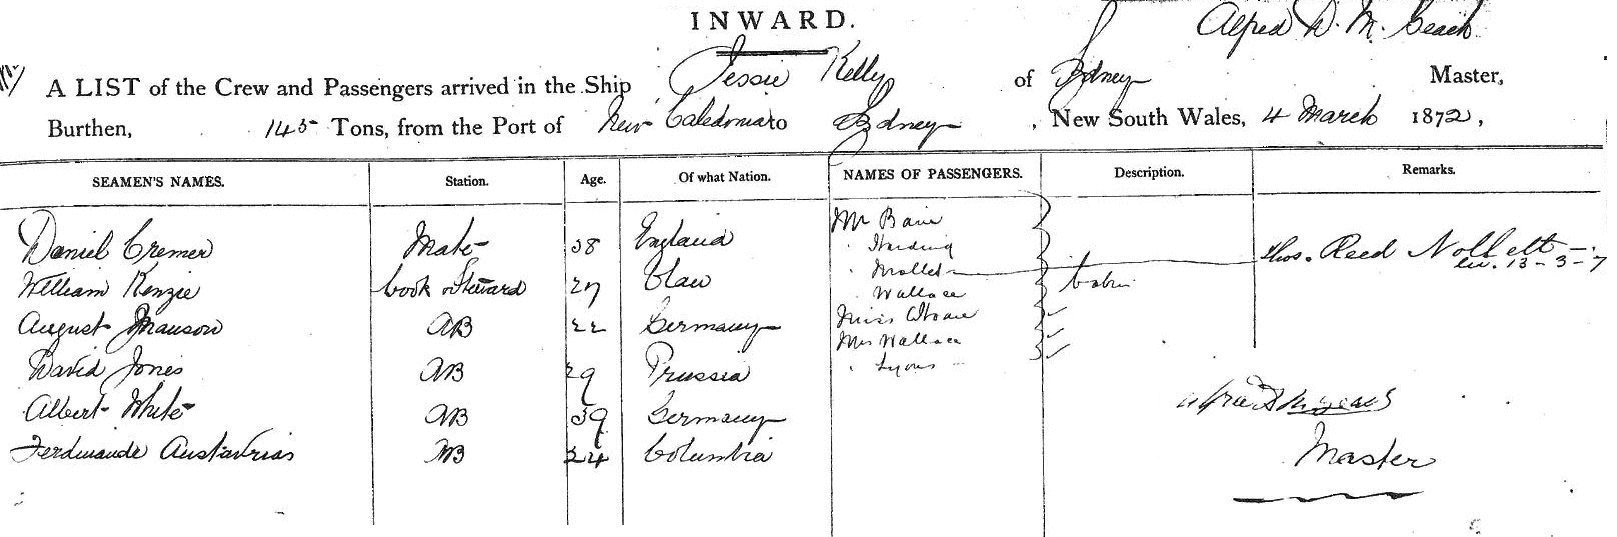 INWARD.
Alfred D. M.
A LIST of the Crew and Passengers arrived in the Ship Jessie Kelly of Sydney Master,
Burthen, 145 Tons, from the Port of New Caledonia to Sydney, New South Wales, 4 March 1872,
SEAMEN'S NAMES. Station. Age. Of what Nation. NAMES OF PASSENGERS. Description. Remarks.
Daniel Cremer Mate 38 England Mr Bain
" Harding
William Kenzie Cook & Steward 27 " Mallet Thos. Reed
" Wallace
August 22 Germany Miss
AB Mrs Wallace
David Jones AB 29 Prussia " Lyons
Albert White AB 39 Germany
Ferdinande AB 24 Columbia
Master